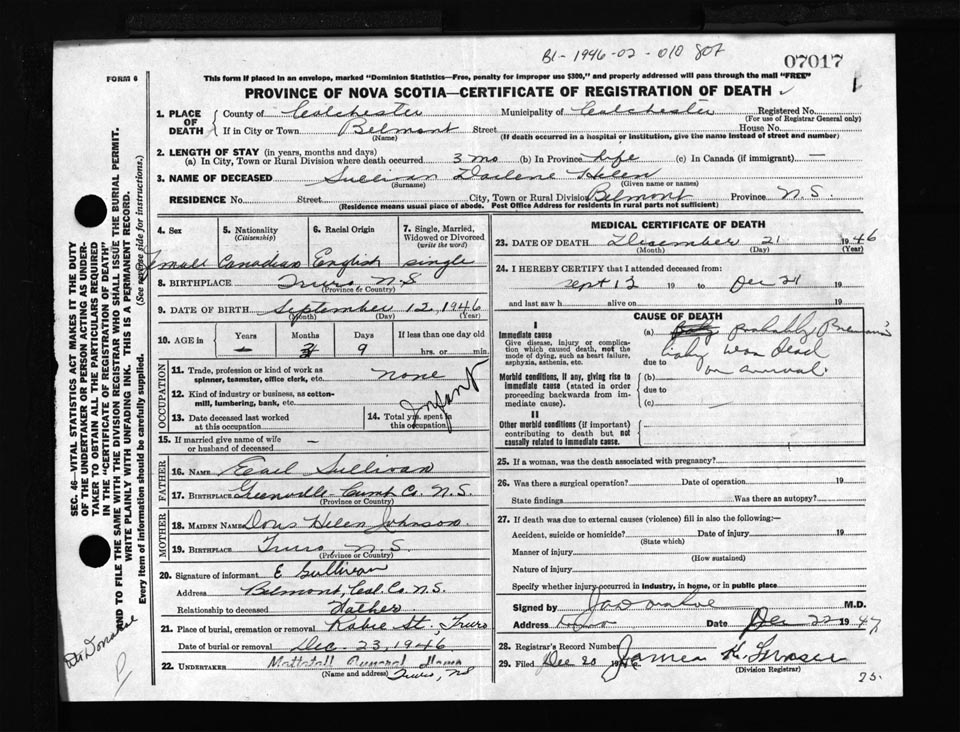 B1-1946-02-010 807
07017
FORM 6
This form if placed in an envelope, marked "Dominion Statistics—Free, penalty for improper use $300," and properly addressed will pass through the mail "FREE"
PROVINCE OF NOVA SCOTIA—CERTIFICATE OF REGISTRATION OF DEATH
1. PLACE OF DEATH
County of Colchester Municipality of Colchester Registered No.
(For use of Registrar General only)
If in City or Town Belmont Street House No.
(Name) (If death occurred in a hospital or institution, give the name instead of street and number)
2. LENGTH OF STAY (in years, months and days)
(a) In City, Town or Rural Division where death occurred 3 mo (b) In Province Life (c) In Canada (if immigrant) —
3. NAME OF DECEASED Sullivan Darlene Helen
(Surname) (Given name or names)
RESIDENCE No. Street City, Town or Rural Division Belmont Province N.S
(Residence means usual place of abode. Post Office Address for residents in rural parts not sufficient)
4. Sex 5. Nationality (Citizenship) 6. Racial Origin 7. Single, Married, Widowed or Divorced (write the word)
Female Canadian English single
8. BIRTHPLACE Truro N.S
(Province or Country)
9. DATE OF BIRTH September 12, 1946
(Month) (Day) (Year)
10. AGE in Years Months Days If less than one day old
— 3 9 hrs. or min.
OCCUPATION
11. Trade, profession or kind of work as spinner, teamster, office clerk, etc. none
12. Kind of industry or business, as cotton-mill, lumbering, bank, etc.
13. Date deceased last worked at this occupation
14. Total yrs. spent in this occupation
Infant
15. If married give name of wife or husband of deceased —
FATHER
16. NAME Earl Sullivan
17. BIRTHPLACE Greenville Cumb Co. N.S.
(Province or Country)
MOTHER
18. MAIDEN NAME Doris Helen Johnson
19. BIRTHPLACE Truro N.S.
(Province or Country)
20. Signature of informant E Sullivan
Address Belmont, Col. Co. N.S.
Relationship to deceased Father
21. Place of burial, cremation or removal Robie St. Truro
Date of burial or removal Dec. 23, 1946
22. UNDERTAKER Mattatall Funeral Home
(Name and address) Truro, NS
MEDICAL CERTIFICATE OF DEATH
23. DATE OF DEATH December 21 1946
(Month) (Day) (Year)
24. I HEREBY CERTIFY that I attended deceased from:
Sept 12 19 to Dec 21 19
and last saw h alive on 19
CAUSE OF DEATH
I
Immediate cause
Give disease, injury or complication which caused death, not the mode of dying, such as heart failure, asphyxia, asthenia, etc.
(a) Probably Pneumonia
baby was dead
due to on arrival.
Morbid conditions, if any, giving rise to immediate cause (stated in order proceeding backwards from immediate cause).
(b)
due to
(c)
II
Other morbid conditions (if important) contributing to death but not causally related to immediate cause.
25. If a woman, was the death associated with pregnancy?
26. Was there a surgical operation? Date of operation 19
State findings Was there an autopsy?
27. If death was due to external causes (violence) fill in also the following:—
Accident, suicide or homicide? Date of injury 19
(State which)
Manner of injury
(How sustained)
Nature of injury
Specify whether injury occurred in industry, in home, or in public place
Signed by M.D.
Address Date Dec 22 1947
28. Registrar's Record Number
29. Filed Dec 20 1946 James K. Fraser
(Division Registrar)
25.
SEC. 46—VITAL STATISTICS ACT MAKES IT THE DUTY OF THE UNDERTAKER OR PERSON ACTING AS UNDERTAKER TO OBTAIN ALL THE PARTICULARS REQUIRED IN THE "CERTIFICATE OF REGISTRATION OF DEATH" AND TO FILE THE SAME WITH THE DIVISION REGISTRAR WHO SHALL ISSUE THE BURIAL PERMIT.
WRITE PLAINLY WITH UNFADING INK. THIS IS A PERMANENT RECORD.
Every item of Information should be carefully supplied. (See reverse side for instructions.)
Dr Donahoe